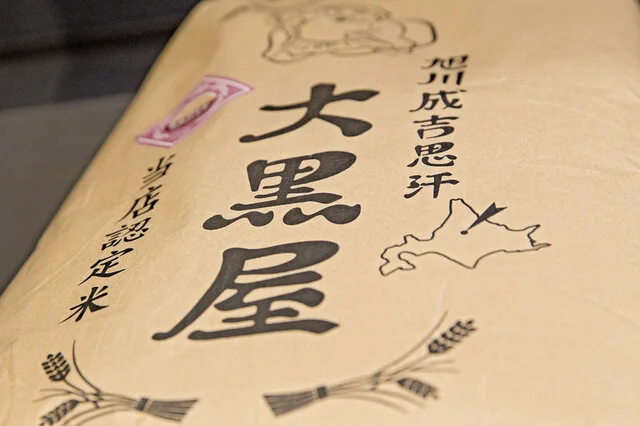 旭川成吉思汗
大黒屋
当店認定米